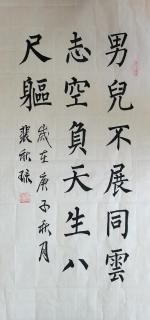 男兒不展同雲
志空負天生八
尺軀
歲在庚子秋月
裴秋瑔